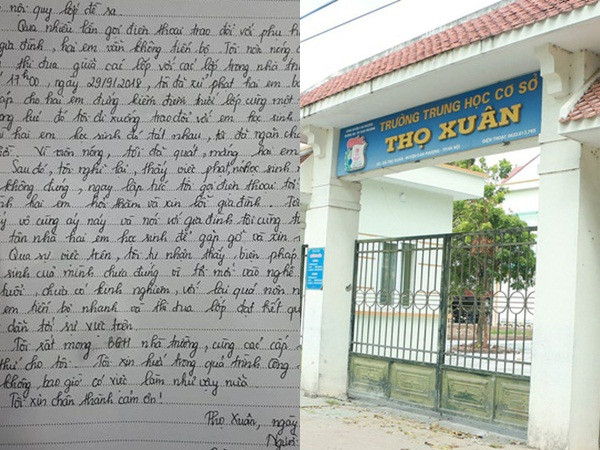 nội quy lớp đề ra.
Qua nhiều lần gọi điện thoại trao đổi với phụ hu
gia đình, hai em vẫn không tiến bộ. Tôi nôn nóng
thi đua giữa các lớp với các lớp trong nhà trư
17h00, ngày 29/9/2018, tôi đã xử phạt hai em b
cho hai em đứng kiễm dưới lớp cùng một
lúc đó tôi đi xuống trao đổi với em học sinh
hai em học sinh đó tát nhau, tôi đã ngăn ch
Vì nôn nóng, tôi đã quát, mắng hai em
Sau đó, tôi nghĩ lại, thấy việc phạt học sinh n
không đúng, ngay lập tức tôi gọi điện thoại tới
hai em hỏi thăm và xin lỗi gia đình. Tô
vô cùng áy náy và nói với gia đình tôi cùng
tận nhà hai em học sinh để gặp gỡ và xin
Qua sự việc trên, tôi tự nhận thấy, biện pháp
sinh của mình chưa đúng vì tôi mới vào nghề
tuổi, chưa có kinh nghiệm, với lại quá nôn n
em tiến bộ nhanh và thi đua lớp đạt kết qu
dẫn tới sự việc trên.
Tôi rất mong BGH nhà trường, cùng các cấp
thứ cho tôi. Tôi xin hứa trong quá trình công
không bao giờ có việc làm như vậy nữa.
Tôi xin chân thành cảm ơn!
Thọ Xuân, ngày
Người
TRƯỜNG TRUNG HỌC CƠ SỞ
THỌ XUÂN